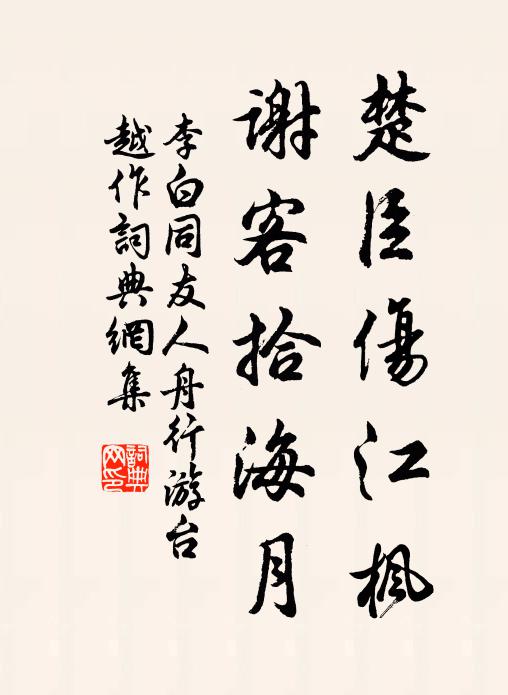 楚臣傷江楓
謝客拾海月
李白同友人舟行游台
越作詞典網集
詞典網印